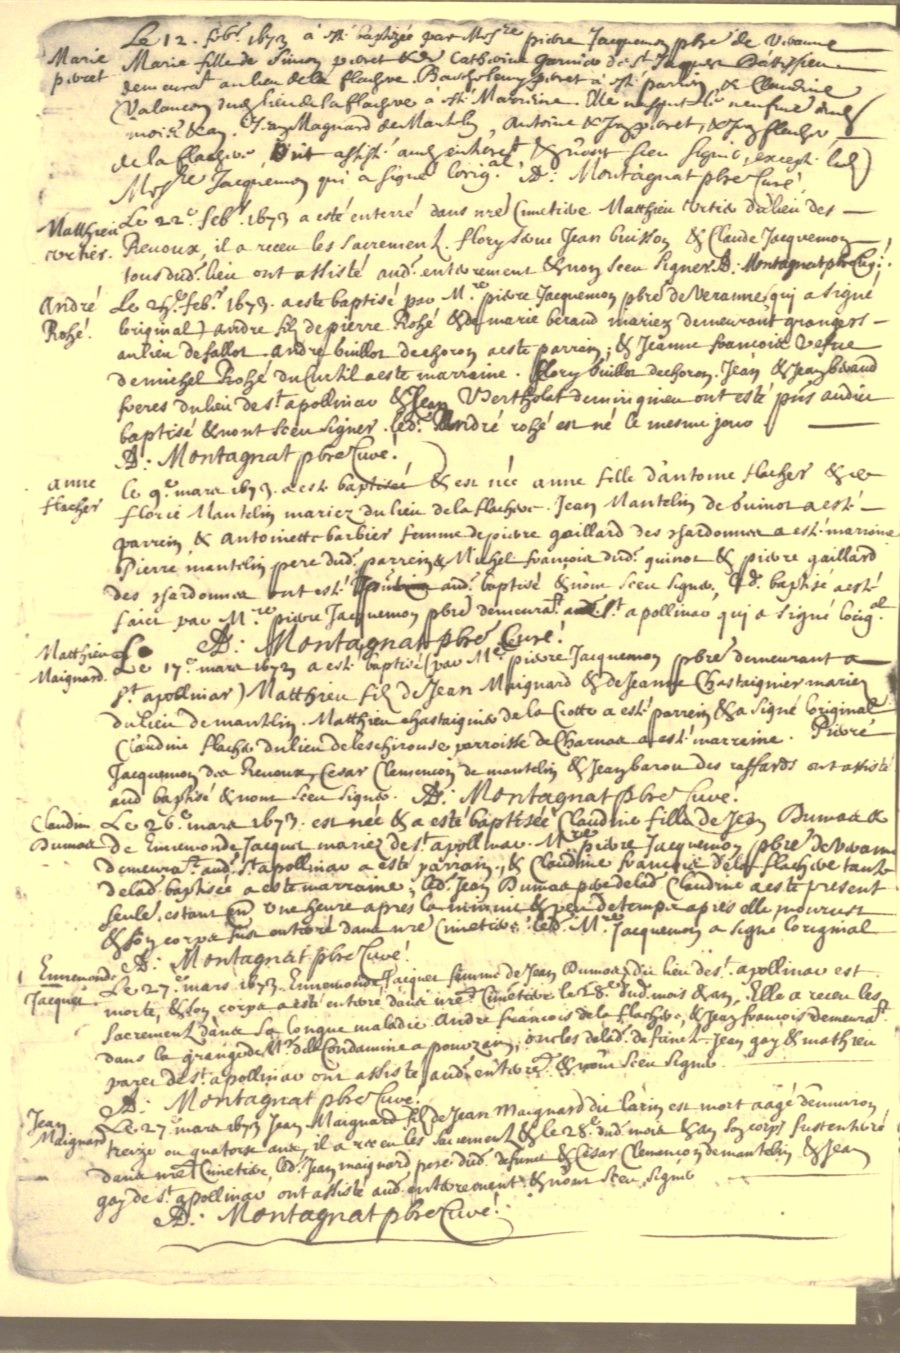 Le 12. febr. 1673 a esté baptizée par Messre pierre Jacquemon pbre de Veranne
Marie pieret
Marie fille de Simon pieret & de Catherine Garnier de St Jacques
demeurat au lieu de la flachere. Barthelemy pieret a esté parrin & Claudine
Valancon dud. lieu de la flachere a esté Marrine. Elle nasquit le neufme dud.
mois & an. Jean Magnard de Mantelin, Antoine & Jean pieret, & Jean flacher
de la flachere, ont assisté & n'ont sceu signer, excepté led.
Messre Jacquemon qui a signé l'orig.al A: Montagnat pbre Curé!
Matthieu certies.
Le 22e febr. 1673 a esté enterré dans nre Cimetiere Matthieu certie du lieu des
Renoux, il a receu les sacremens. flory Jean buisson & Claude Jacquemon
tous dud. lieu ont assisté aud. enterement & n'on sceu signer A: Montagnat pbre Curé!
André Rozé.
Le 25e febr. 1673. a esté baptisé par Mre pierre Jacquemon pbre de Veranne (qui a signé
l'original) andre fils de pierre Rozé & de marie beraud mariez demeurant grangers
au lieu de fallot. andre buillot de choron a esté parrein, & Jeanne françois vefue
de michel Rozé du Curtil a esté marraine. flory buillot de choron. Jean & Jean beraud
freres du lieu de St apollinar & Jean Bertholat de mirigneu ont esté pns audict
baptisé & n'ont sceu signer. led. André rozé est né le mesme jour
A: Montagnat pbre Curé!
anne flacher
le 9e mars 1673. a esté baptisée & est née anne fille d'antoine flacher & de
florie Mantelin mariez du lieu de la flachere. Jean Mantelin de quinot a esté
parrein & Antoinette barbier femme de pierre gaillard des chardonnes a esté marrine
Pierre mantelin pere dud. parrein & Michel françois dud. quinot & pierre gaillard
des chardonnes ont esté aud. baptisé & n'ont sceu signer, led. baptisé a esté
faict par Mre pierre Jacquemon pbre demeurat a St apollinar qui a signé l'orig.al
A: Montagnat pbre Curé!
Matthieu Maignard.
Le 17e mars 1673 a esté baptisé (par Mre pierre Jacquemon pbre demeurant a
St apollinar) Matthieu fils de Jean Maignard & de Jeanne Chastaignier mariez
du lieu de mantelin. Matthieu chastaignier de la Crotte a esté parrein & a signé l'original
Claudine flacher du lieu de leschirouse parroisse de Charnas a esté marreine. Pierre
Jacquemon des Renoux, Cesar Clemencon de mantelin & Jean barou des raffards ont assisté
aud baptisé & n'ont sceu signer. A: Montagnat pbre Curé!
Claudine Dumas
Le 26e mars 1673. est née & a esté baptisée Claudine fille de Jean Dumas &
de Ennemonde Jacquet mariez de St apollinar. Mre pierre Jacquemon pbre de Veranne
demeurat aud. St apollinar a esté parrain, & Claudine françois de la flachere tante
de lad. baptisée a esté marraine; led. Jean Dumas pere de lad. Claudine a esté present
seule, estant une heure apres la minuit & peu de temps apres elle mourust
& son corps fust enterré dans nre Cimetiere. led. Mre Jacquemon a signé l'original
A: Montagnat pbre Curé!
Ennemonde Jacquet
Le 27e mars 1673. Ennemonde Jacquet femme de Jean Dumas du lieu de St. apollinar est
morte, & son corps a esté enterré dans nre Cimetiere le 28e dud. mois & an. Elle a receu les
sacremens dans sa longue maladie. andre françois de la flachere, & Jean françois demeurat
dans la grange de Mr de la Condamine a pouzan, oncles de lad. defuncte. Jean gay & mathieu
parec de St. apollinar ont assisté aud. enterret. & n'ont sceu signer
A: Montagnat pbre Curé.
Jean Maignard
Le 27e mars 1673 Jean Maignard fils de Jean Maignard du larin est mort aagé d'environ
treize ou quatorse ans, il a receu les sacremens & le 28e dud. mois & an son corps fust enterré
dans nre Cimetiere, led. Jean maignard pere dud. defunct & Cesar Clemencon de mantelin & Jean
gay de St. apollinar ont assisté aud. enterement & n'ont sceu signer
A: Montagnat pbre Curé!